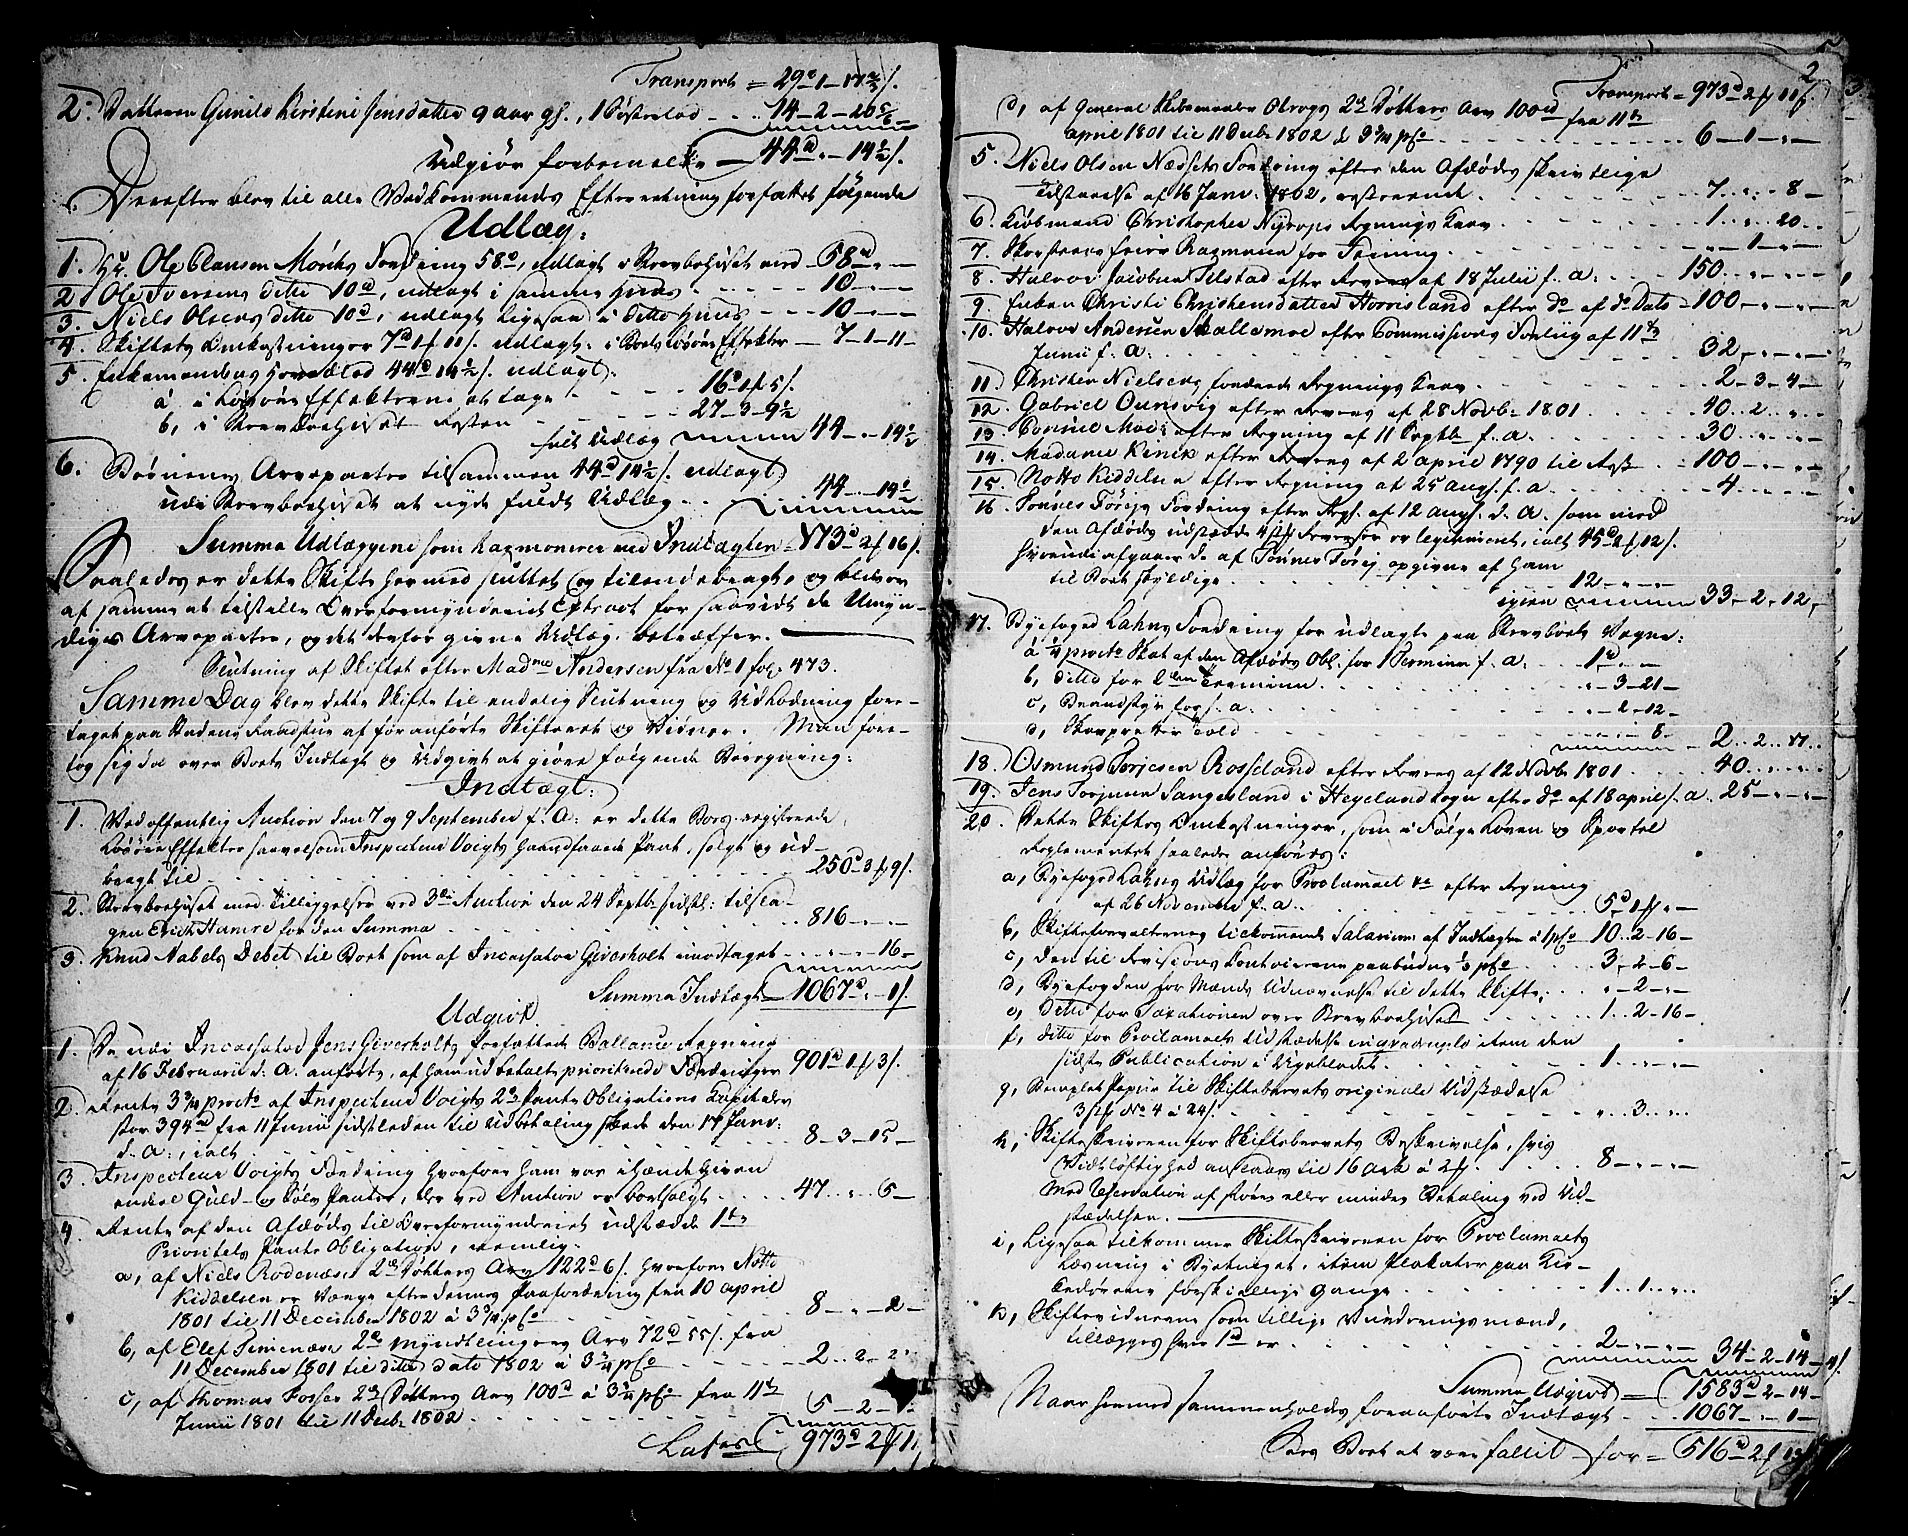 Transport = 29 - 1 - 17
2. Datteren Gunild Kirstine Jensdatter 9 aar gl., 1 Søsterlod - 14 - 2 - 20 5/6
Udgiør forbemelte - 44 d - 14 1/2 s.
Derefter blev til alle Vedkommendes Efterretning forfattet følgende
Udlæg:
1. Hr. Ole Clausen Mørchs Fordring 58 d, udlagt i Stervboehuset med - 58 d
2. Ole Iversens ditto 10 d, udlagt i samme Huus - 10
3. Niels Olsens ditto 10 d, udlagt ligesaa i ditto Huus - 10
4. Skiftets Omkostninger 7 d 1 f 11 s. udlagt i Boets Løsøre Effekter - 7 - 1 - 11
5. Enkemandens Hovedlod 44 d 14 1/2 s. udlagt:
a, i Løsøre Effekterne at tage 16 d 1 f 5 s.
b, i Stervboehuset Resten 27 - 3 - 9 1/2
fuldt Udlæg 44 - - 14 1/2
6. Børnenes Arveparter tilsammen 44 d 14 1/2 s. udlagt
udi Stervboehuset at nyde fuldt Udlæg 44 - - 14 1/2
Summa Udlæggene som harmonerer med Indtægten 173 d 2 f 16 s.
Saaledes er dette Skifte hermed sluttet og tilendebragt, og bliver
af samme at tilstille Overformynderiet Extract for saavidt de Umyn-
diges Arveparter, og det derfor givne Udlæg betræffer.
Slutning af Skiftet efter Mad.me Andersen fra No 1 fol. 473.
Samme Dag blev dette Skifte til endelig Slutning og Udlodning fore-
taget paa Stadens Raadstue af før anførte Skifteret og Vidner. Man fore-
tog sig da over Boets Indtægt og Udgivt at giøre følgende Beregning:
Indtægt:
1. Ved offentlig Auction den 7 og 9 September f. A: er dette Boes registrerede
Løsøre Effekter saavelsom Inspecteur Voigts haandfaaede Pant, solgt og ud-
bragt til 250 d 3 f 9 s.
2. Stervboehuset med Tilliggelser ved 3de Auction den 24 Septbr sidstl: tilsla-
gen Erich Hamre for den Summa 816
3. Knud Nabels Debet til Boet som af Incassator Giverholt imodtaget 16
Summa Indtægt 1067 d - 1 s.
Udgivt
1. De udi Incassator Jens Giverholts forfattede Ballance Regning
af 16 Februarii d: A. anførte, af ham udbetalte prioriterede Fordringer 901 d 1 f 3 s.
2. Rente 3 3/4 procto af Inspecteur Voigts 2de Pante Obligations Kapitaler
stor 394 d fra 11 Junii sidstleden til Udbetaling skede den 17 Janv:
d. A:, ialt 8 - 3 - 15
3. Inspecteur Voigts Fordring hvorfore ham var ihændegiven
endeel Guld- og Sølv Panter, der ved Auction er bortsolgt 47 - 6
4. Rente af den Afdødes til Overformynderiet udstædde 1ste
Prioritets Pante Obligation, nemlig:
a, af Niels Rodenæses 2de Døttres Arv 122 d 6 s. hvorfore Notto
Kiddelsen er Værge efter dennes Paafordring fra 10 April
1801 til 11 December 1802 a 3 3/4 pCto 8 - - 2
b, af Elef Timenæses 2de Myndlingers Arv 72 d 55 s. fra
11 December 1801 til ditto dato 1802 a 3 3/4 pCto 2 - 2 -
c, af Thomas Fosses 2de Døttres Arv 100 d a 3 3/4 pCto fra 11te
Junii 1801 til 11 Decbr 1802 5 - 2 -
Latus 973 d 2 f 11
2
Transport = 973 d 2 f 11 s.
d, af General Krigsmester Olrogs 2de Døttres Arv 100 rd fra 11te
April 1801 til 11 Decbr 1802 a 3 3/4 pCto 6 - 1
5. Niels Olsen Nedsets Fordring efter den Afdødes skrivtlige
Tilstaaelse af 16 Janv. 1802, resterende 7 - - 8
6. Kiøbmand Christopher Nyrops Regnings Krav 1 - - 20
7. Skorsteens Feier Razmann for Feining 1
8. Halvor Jacobsen Tilstad efter Revers af 18 Julii f. a: 150
9. Enken Christi Christensdatter Horrisland efter do af do Dato 100
10. Halvor Andersen Skallemoe efter Commissions Forliig af 11te
Junii f. A: 32
11. Christen Nielsens formente Regnings Krav 2 - 3 - 4
12. Gabriel Ounsvig efter Revers af 28 Novbr 1801 40 - 2
13. Consul Moe: efter Regning af 11 Septbr f. a. 30
14. Madame Rinik efter Revers af 2 April 1790 til Rest 100
15. Notto Kiddelsen efter Regning af 25 Augs. f. a 4
16. Tønnes Tørje Fordring efter Regs. af 12 Augs. d. A. som med
den Afdødes udstædde Reverser er legitimeret, ialt 45 d 2 f 12 s.
hvorudi afgaaer de af Tønnes Tørje opgivne af ham
til Boet skyldige 12
igien 33 - 2 - 12
17. Byefoged Lahns Fordring for udlagte paa Stervboets Vegne:
a 1/4 procto Skat af den Afdødes Obl. for 1 Termin f. a: 1 d
b, ditto for 2den Termin 3 - 21
c, Brandstyr for f. a: 2 - 12
d, Told 8
2 - 2 - 17
18. Osmund Terjesen Rosseland efter Revers af 12 Novbr 1801 40
19. Jens Torjusen Sangesland i Hegelandsogn efter do af 18 April f. a. 25
20. Dette Skiftes Omkostninger, som i Følge Loven og Sportel
Reglementet saaledes anføres:
a, Byefoged Lahns Udlæg for Proclamaet &c efter Regning
af 26 November f. a. 5 d 1 f
b, Skifteforvalterens tilkommende Salarium af Indtægten a 1 pCto 10 - 2 - 16
c, Den til Revisions Contoirerne paabudne 1/3 pCto 3 - 2 - 6
d, Byefogden for Mænds Udnævnelse til dette Skifte 2
e, Ditto for Taxationen over Stervboehuset 1 - 2 - 16
f, ditto for Proclamaets Udstædelse in quadruplo item den
sidste Publication i Ugebladet 1
g, Stemplet Papir til Skiftebrevets originale Udstædelse
No 4 a 24 s. 3
h, Skifteskriveren for Skiftebrevets Beskrivelse, hvis
Vidtløftighed ansees til 16 Ark a 2 f 8
Med Reservation af større eller mindre Betaling ved Ud-
stædelsen.
i, Ligesaa tilkommer Skifteskriveren for Proclamaets
Læsning i Byetinget, item Plokater paa Kir-
kedørene forskiellige gange 1 - 1
k, Skiftevidnerne som tillige Vurderingsmænd,
tillægges hver 1 d er 2
34 - 2 - 14
Summa Udgivt 1583 d 2 - 14
Naar hermed sammenholdes foranførte Indtægt 1067 - - 1
Sees Boet at være fallit for = 516 d 2 f 13